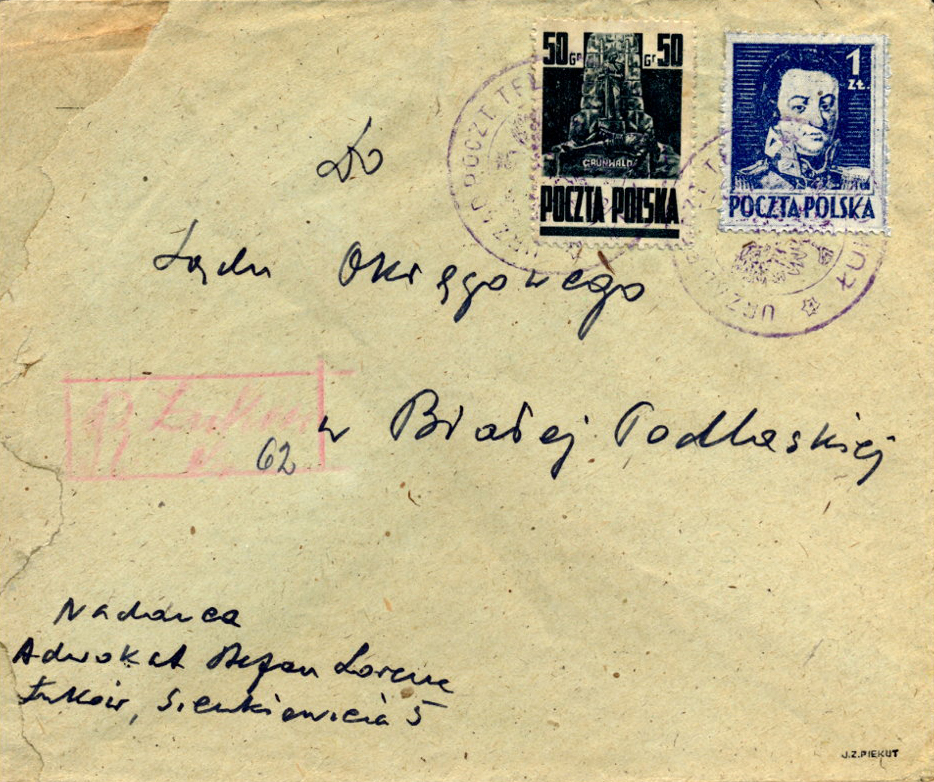 50 Gr Gr 50
GRUNWALD
POCZTA POLSKA
1 ZŁ.
POCZTA POLSKA
URZĄD POCZT TEL
URZ
Do
Sądu Okręgowego
w Białej Podlaskiej
R Łuków
62
Nadawca
Adwokat Stefan Lorenc
Łuków, Sienkiewicza 5
J.Z.PIEKUT